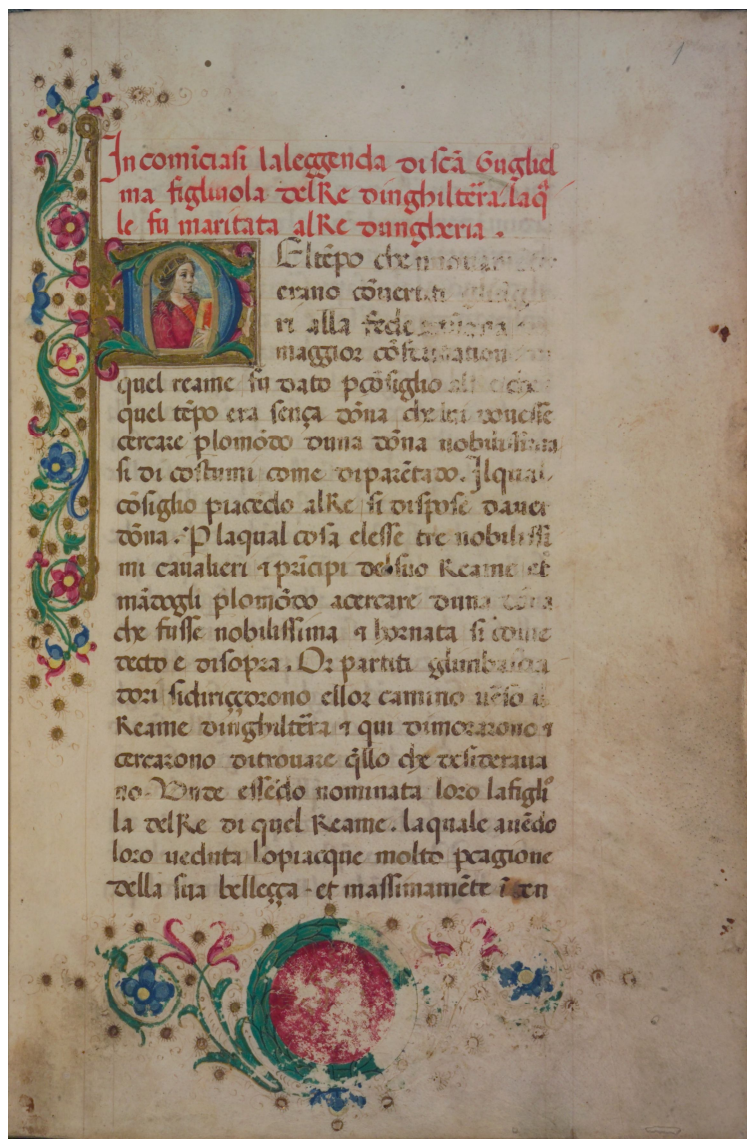 1
In comīciasi la leggenda di scā Guglicl
ma figliuola del Re dinghiltēra. laq̄
le fu maritata al Re dungheria .
El tēpo che
erano cōuerti
ri alla fede
maggior
quel reame fu dato p cōsiglio
quel tēpo era sença dōna che lui douesse
cercare plomōdo duna dōna nobilissima
si di costumi come di parētado. Il qual
cōsiglio piacēdo al Re si dispose dauer
dōna. P laqual cosa elesse tre nobilissi
mi caualieri ⁊ prīcipi del suo Reame et
mādogli plomōdo acercare duna dōna
che fusse nobilissima ⁊ hornata si come
decto e disopra. Or partiti glimbascia
dori sidiriççorono ellor camino uerso il
Reame dinghiltēra ⁊ qui dimorarono ⁊
cercarono ditrouare q̄llo che desideraua
no. Onde essēdo nominata loro lafigluo
la del Re di quel Reame. laquale auēdo
loro ueduta lopiacque molto p cagione
della sua belleçça. et massimamēte